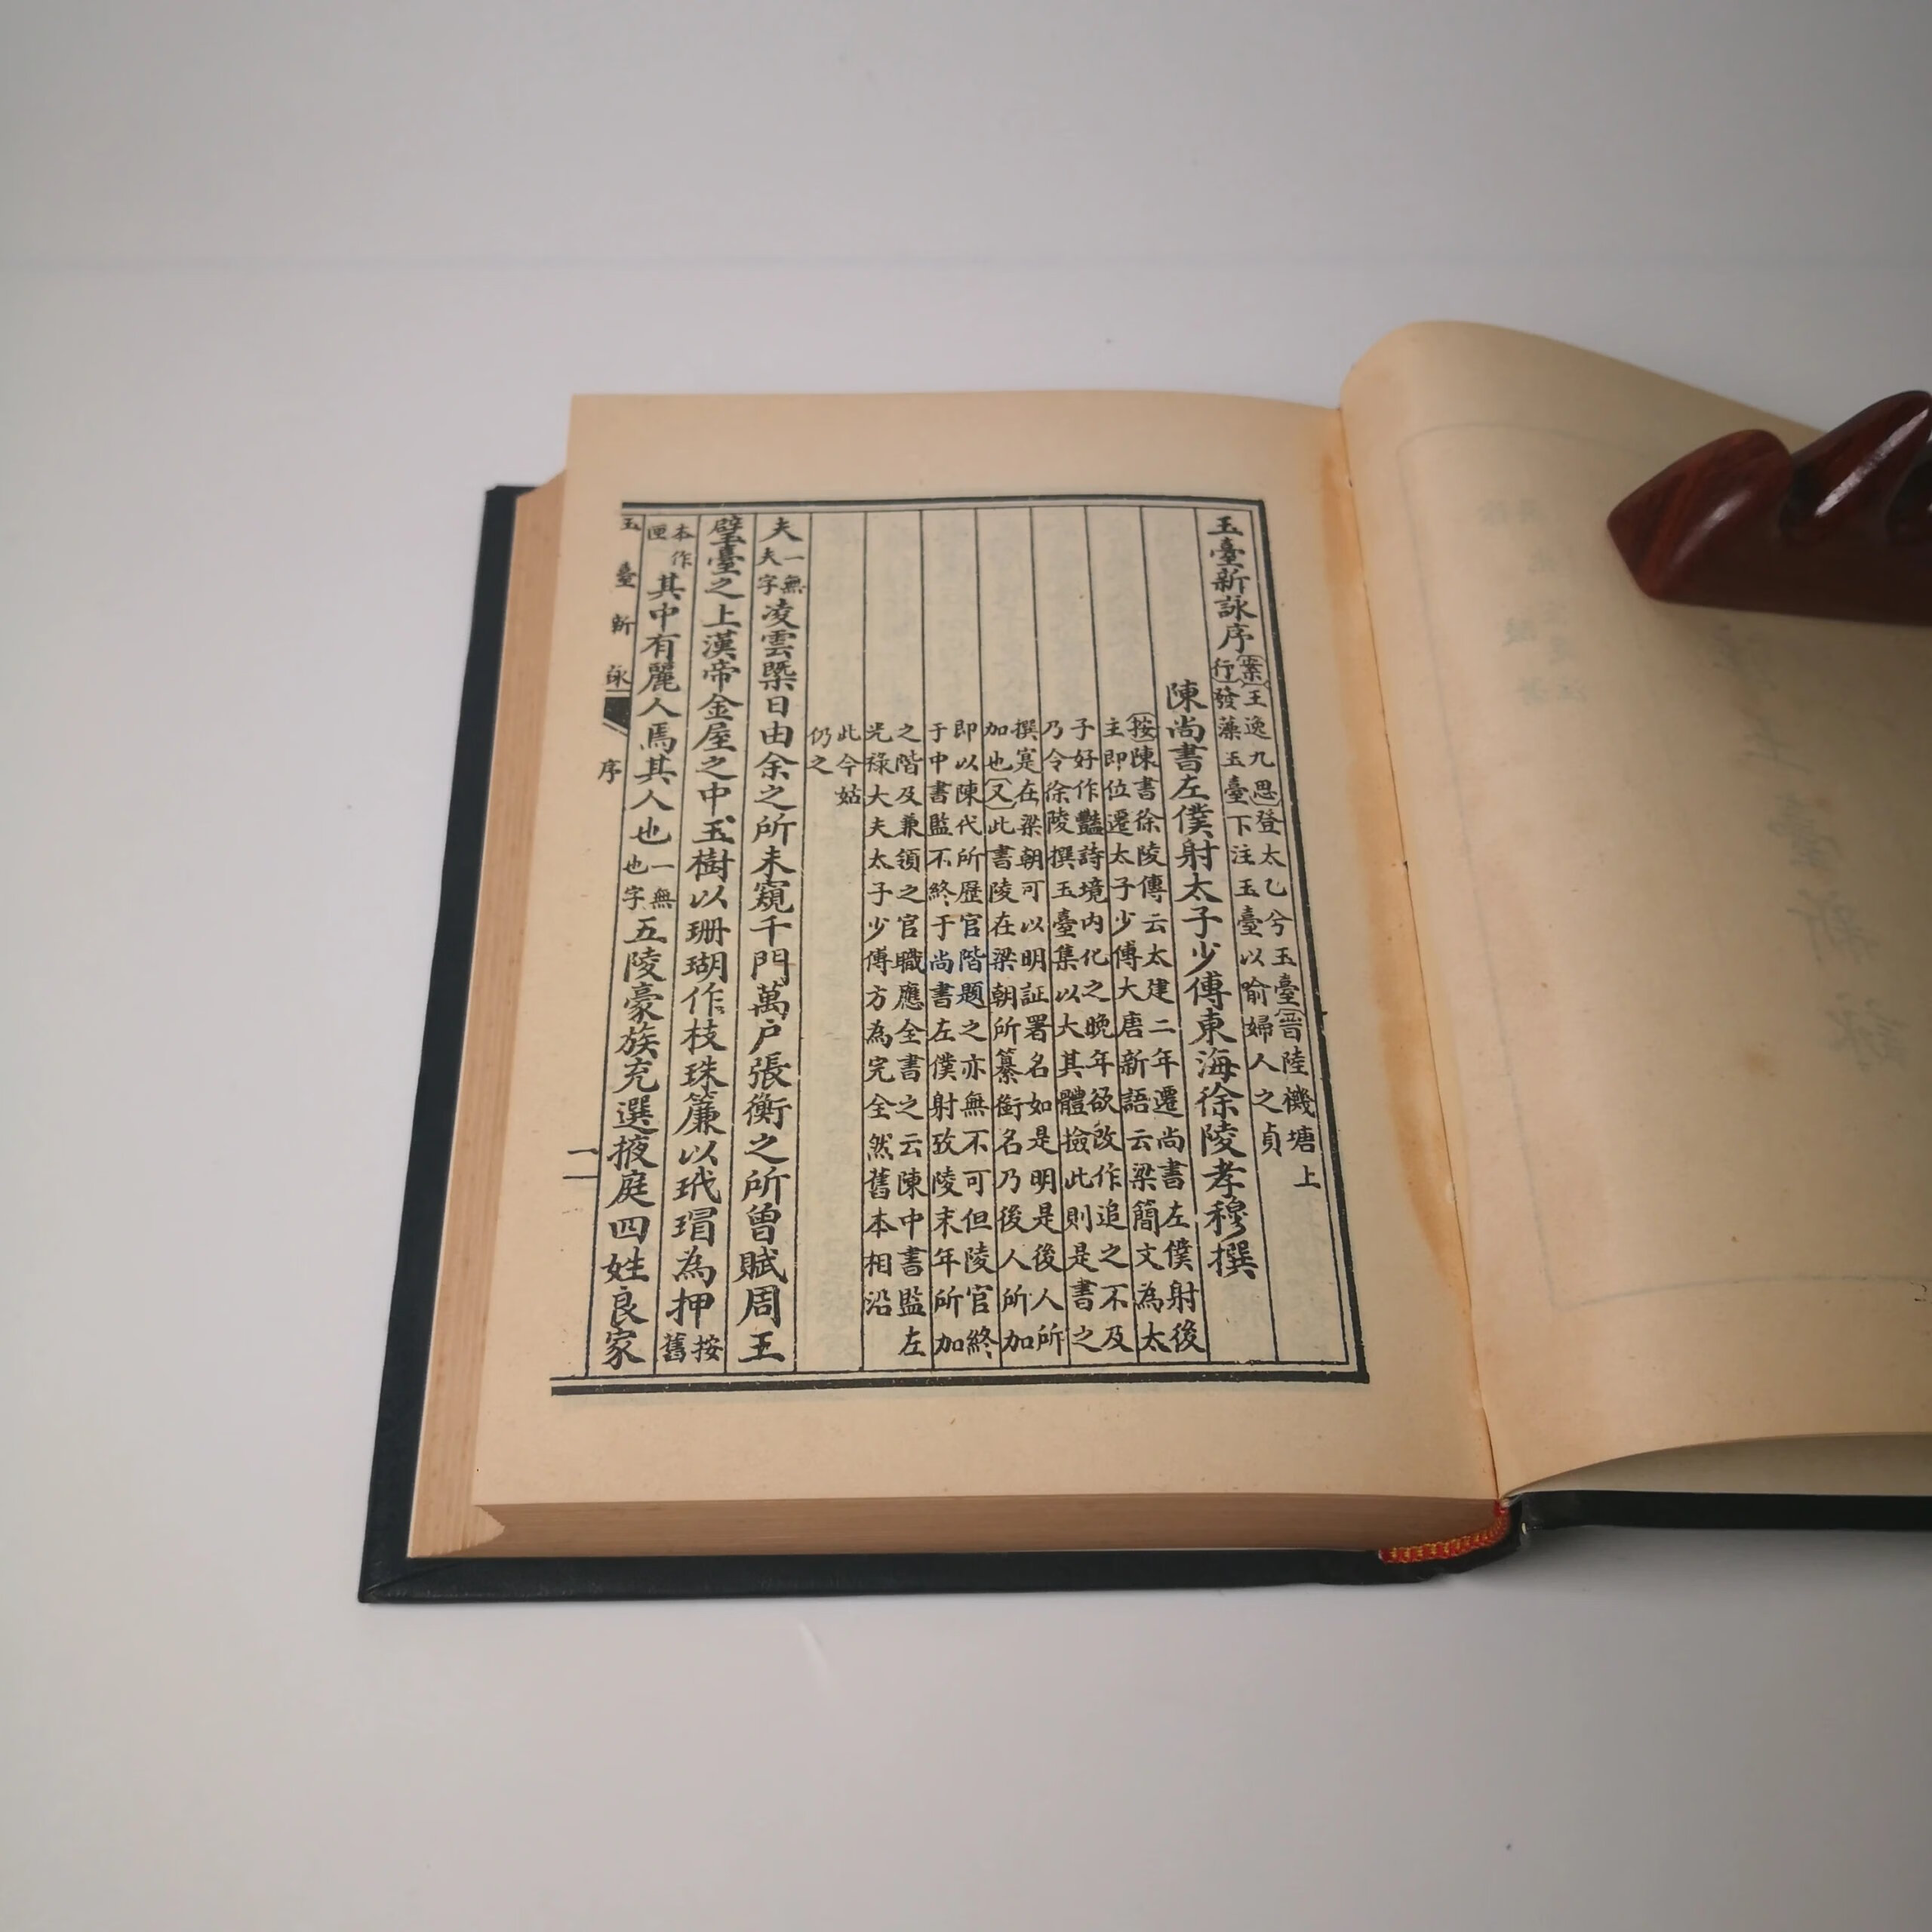 玉臺新詠序
案王逸九思登太乙兮玉臺晉陸機塘上
行發藻玉臺下注玉臺以喻婦人之貞
陳尚書左僕射太子少傅東海徐陵孝穆撰
按陳書徐陵傳云太建二年遷尚書左僕射後
主即位遷太子少傅大唐新語云梁簡文為太
子好作豔詩境内化之晚年欲改作追之不及
乃令徐陵撰玉臺集以大其體撿此則是書之
撰寔在梁朝可以明証署名如是明是後人所
加也又此書陵在梁朝所纂銜名乃後人所加
即以陳代所歷官階題之亦無不可但陵官終
于中書監不終于尚書左僕射攷陵末年所加
之階及兼領之官職應全書之云陳中書監左
光祿大夫太子少傅方為完全然舊本相沿
此今姑
仍之
夫一無夫字凌雲槩日由余之所未窺千門萬户張衡之所曾賦周王
璧臺之上漢帝金屋之中玉樹以珊瑚作枝珠簾以玳瑁為押按舊
本作匣其中有麗人焉其人也一無也字五陵豪族充選掖庭四姓良家
玉臺新詠 序 一